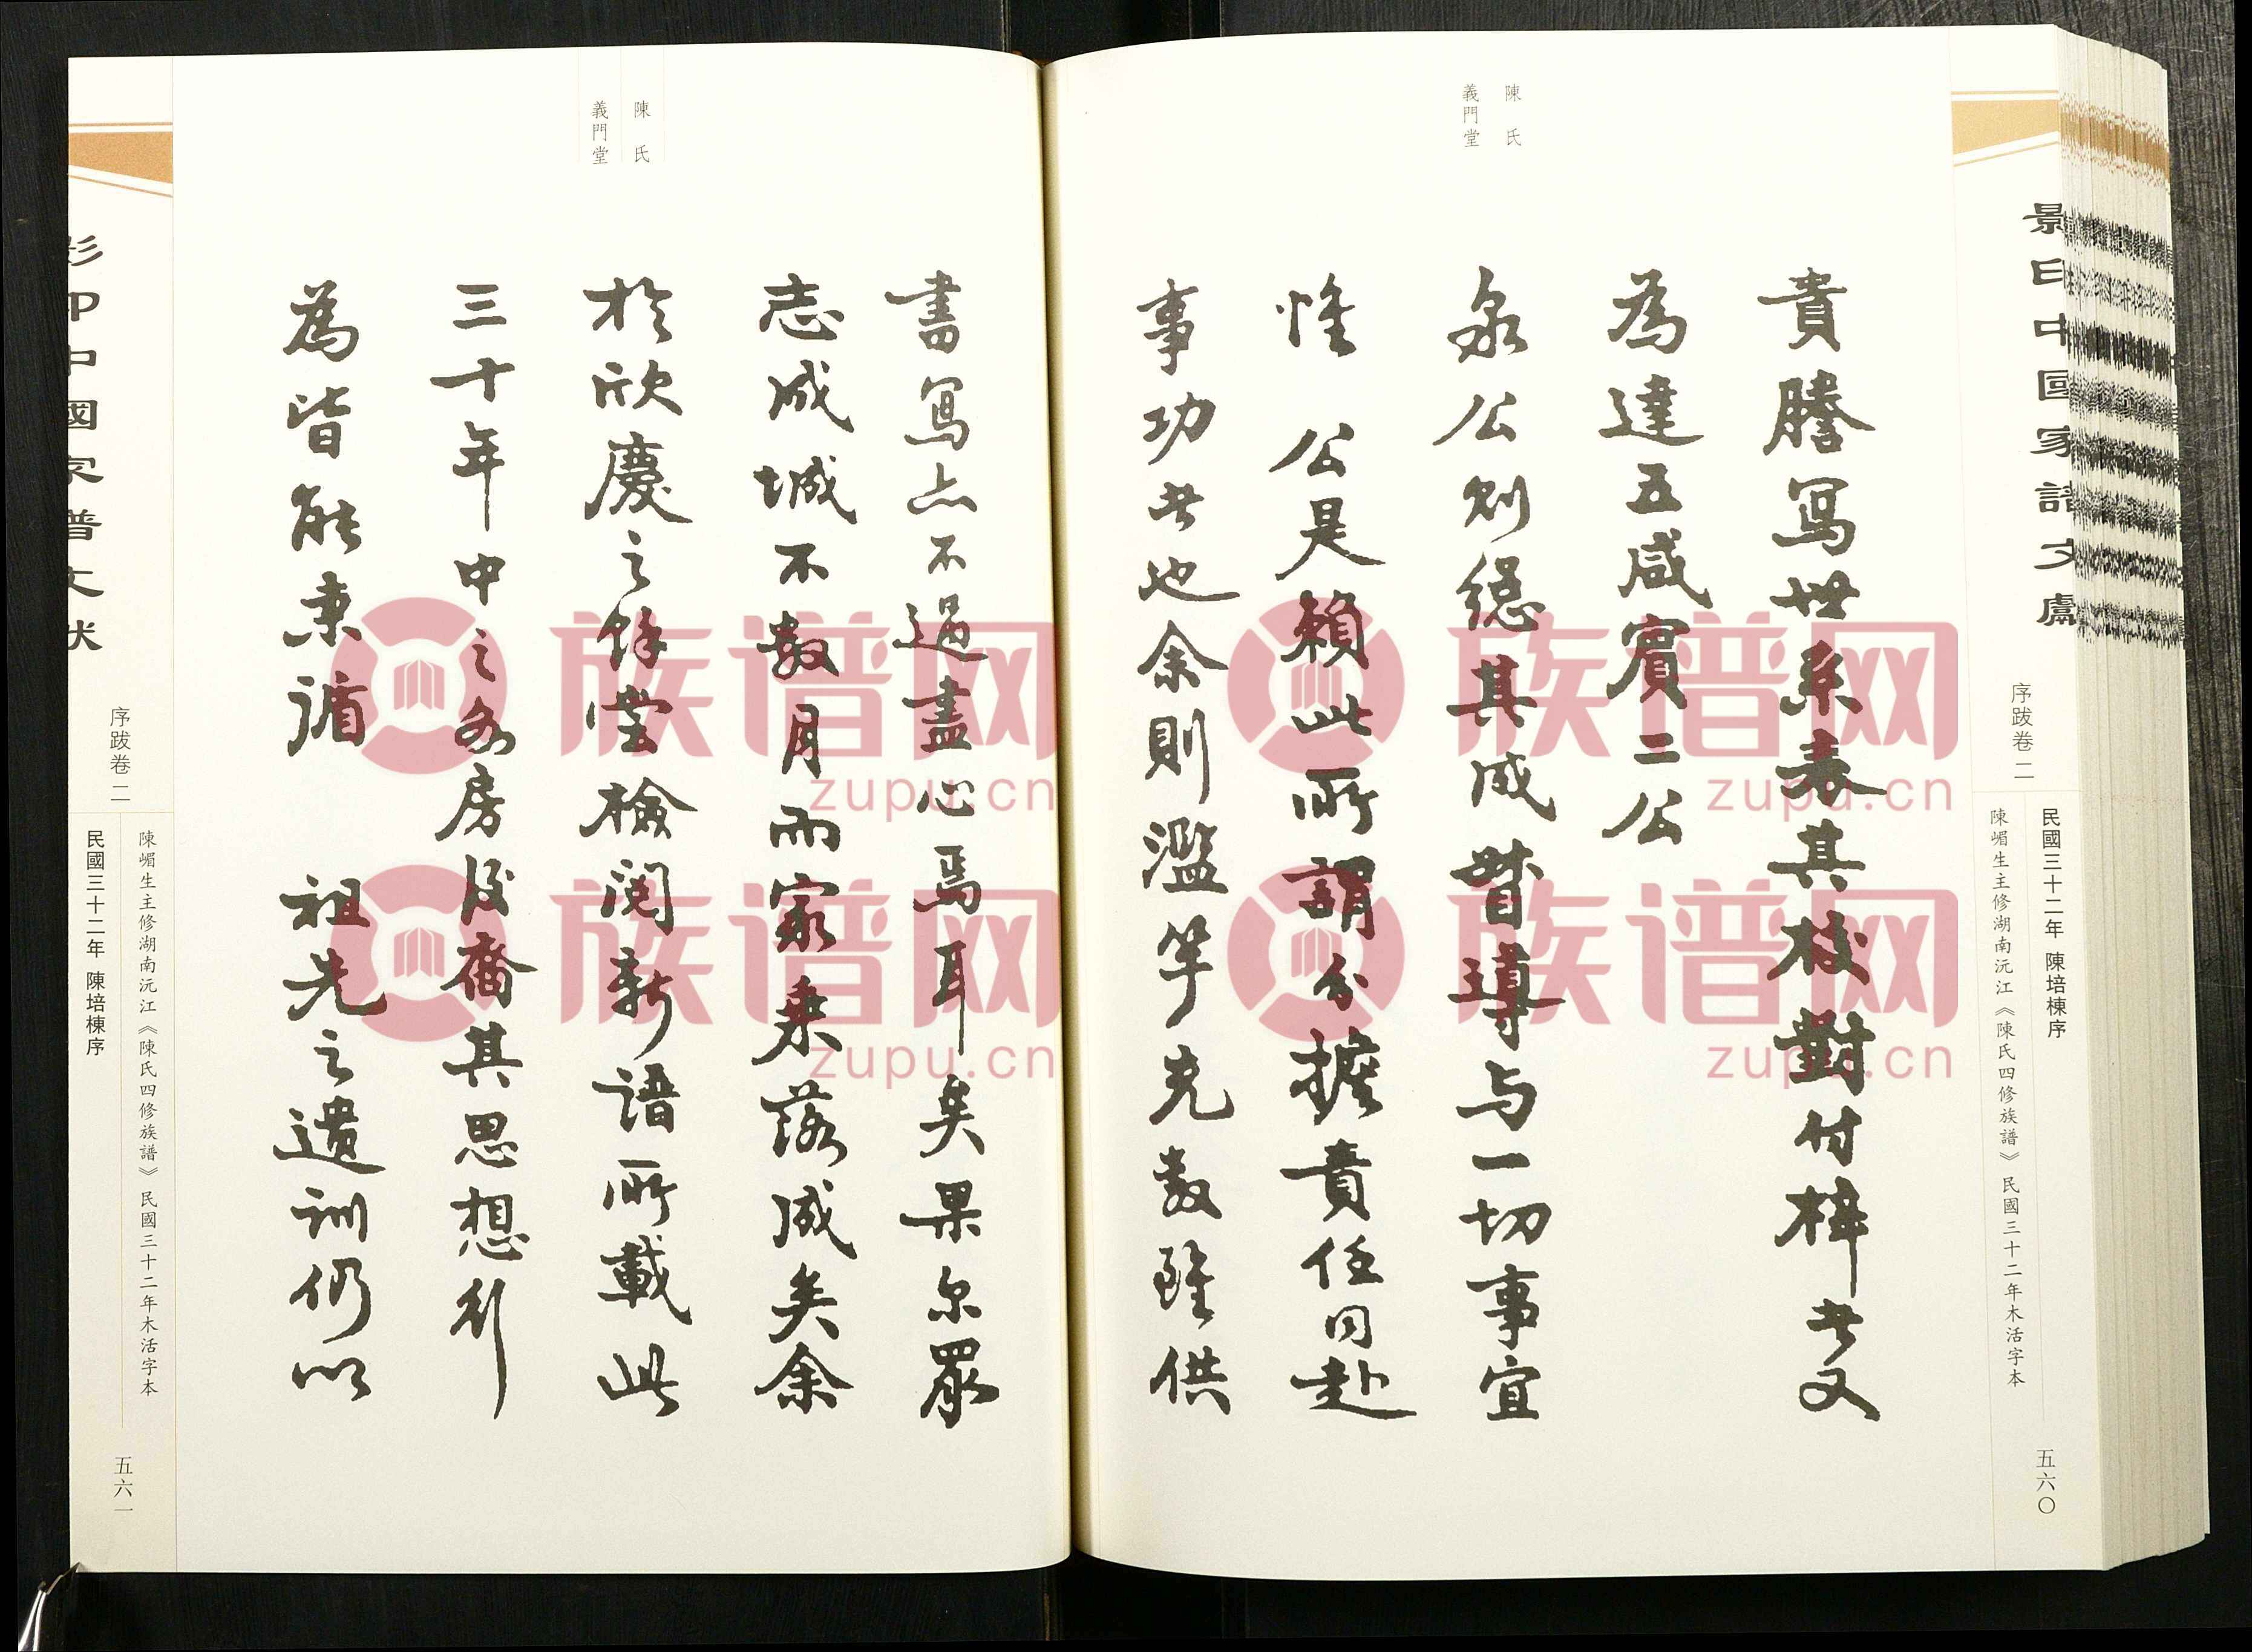 景印中國家譜文獻
序跋卷二
民國三十二年 陳培棟序
陳嵋生主修湖南沅江《陳氏四修族譜》民國三十二年木活字本
五六〇
陳氏
義門堂
責謄寫世系表其校對付梓者又
為達五咸賓二公
泉公則總其成督導与一切事宜
惟 公是賴此所謂分擔責任同赴
事功者也余則濫竽充數雖供
陳氏
義門堂
書寫亦不過盡心焉耳矣果尔眾
志成城不數月而家乘落成矣余
於欣慶之餘瑩檢閱新譜所載此
三十年中之各房後裔其思想行
為皆能秉循 祖先之遺訓仍以
序跋卷二
民國三十二年 陳培棟序
陳嵋生主修湖南沅江《陳氏四修族譜》民國三十二年木活字本
五六一
族谱网
zupu.cn
族谱网
zupu.cn
族谱网
zupu.cn
族谱网
zupu.cn